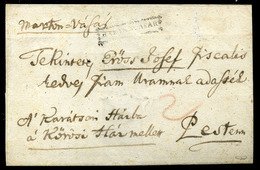 Marton-Vásár
Tekintetes Erőss Josef Fiscalis
kedves fiam Uramnak adassék
A' Karátsoni Házba
a' Kőrösi Ház mellett Pesten
2